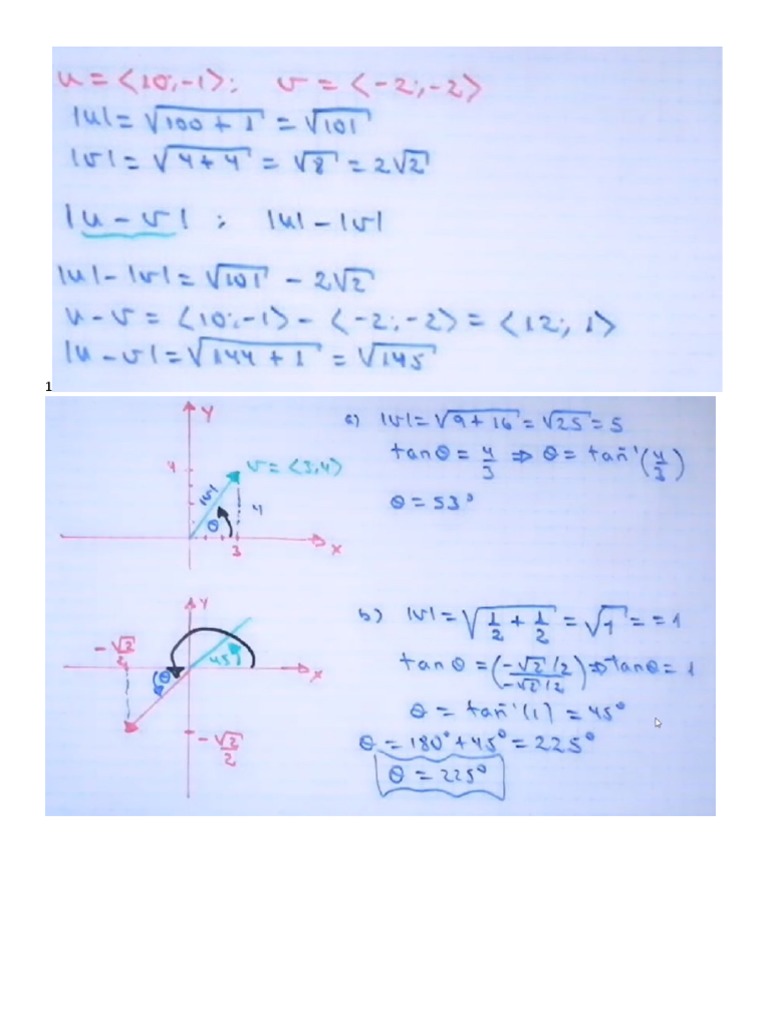 u = <10;-1>; v = <-2;-2>
|u| = √(100 + 1) = √101
|v| = √(4 + 4) = √8 = 2√2
|u - v| ; |u| - |v|
|u| - |v| = √101 - 2√2
u - v = <10;-1> - <-2;-2> = <12; 1>
|u - v| = √(144 + 1) = √145
1
y
4
v = <3,4>
|v|
θ
4
3
x
a) |v| = √(9 + 16) = √25 = 5
tan θ = 4/3 ⇒ θ = tan⁻¹(4/3)
θ = 53°
y
-√2/2
45°
θ
x
-√2/2
b) |v| = √(1/2 + 1/2) = √1 = = 1
tan θ = (-√2/2 / -√2/2) ⇒ tan θ = 1
θ = tan⁻¹(1) = 45°
θ = 180° + 45° = 225°
θ = 225°